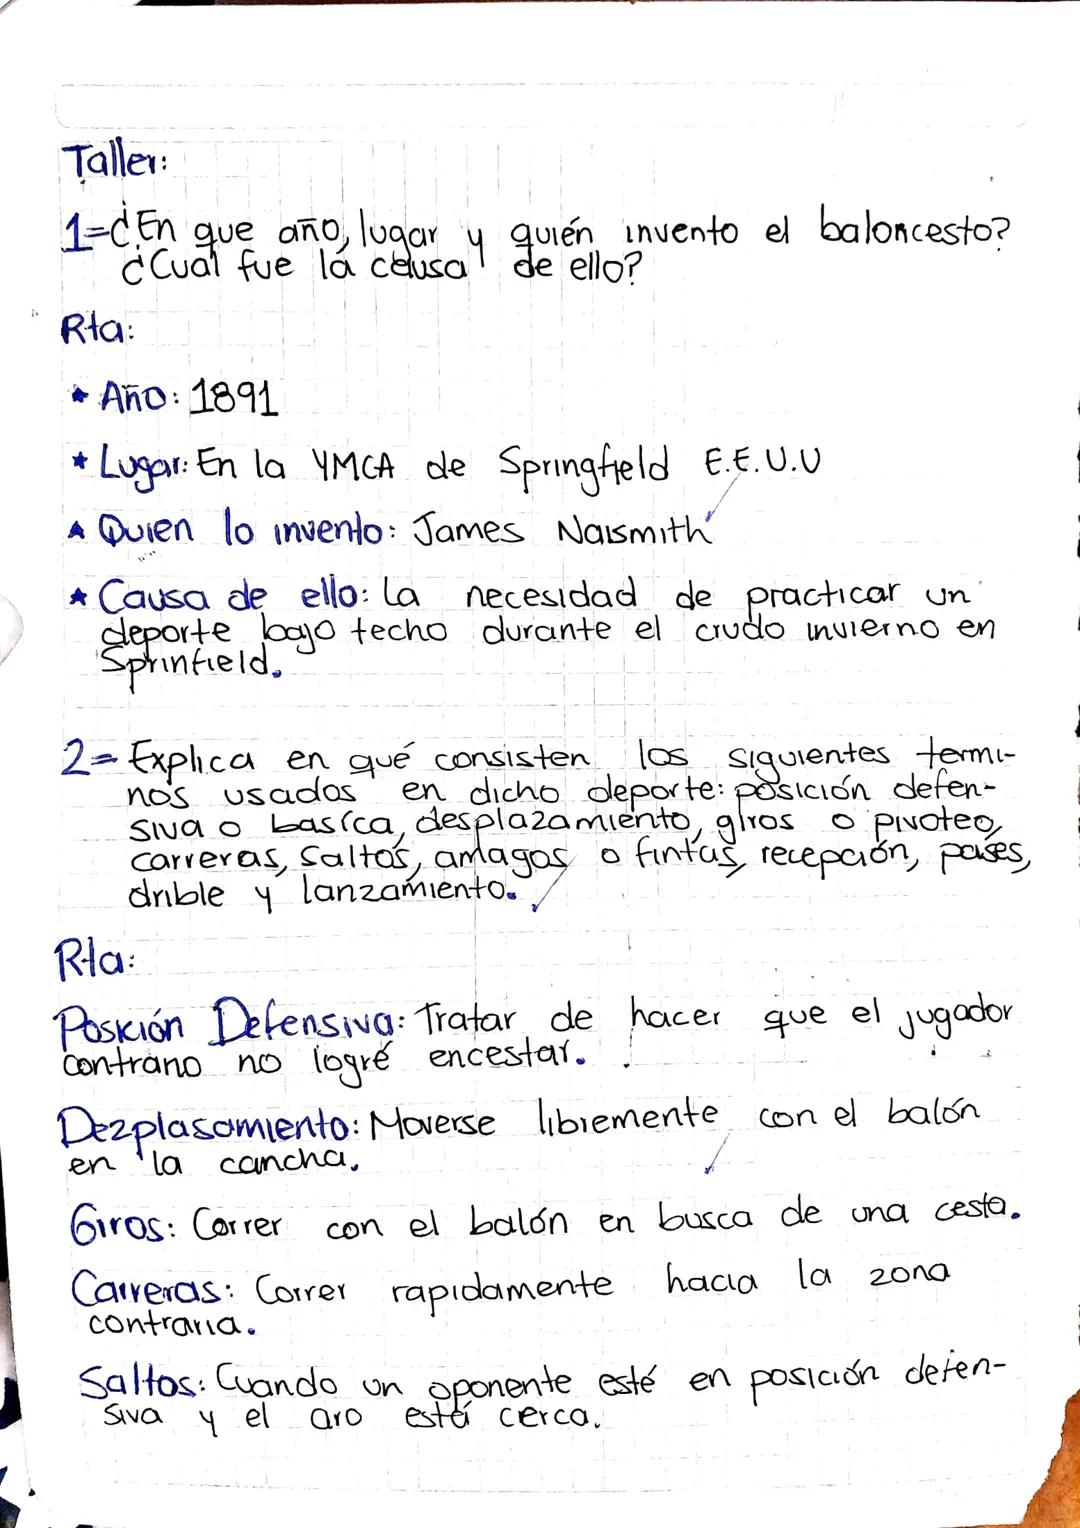 Taller:
1=¿En que año, lugar y quién invento el baloncesto?
¿Cual fue la causa de ello?
Rta:
* Año: 1891
* Lugar: En la YMCA de Springfield E.E.U.U
* Quien lo invento: James Naismith
* Causa de ello: La necesidad de practicar un
deporte bajo techo durante el crudo invierno en
Sprinfield.
2= Explica en qué consisten los siguientes termi-
nos usados en dicho deporte: posición defen-
siva o basica, desplazamiento, giros o pivoteo,
carreras, saltos, amagos o fintas, recepción, pases,
drible y lanzamiento.
Rta:
Posición Defensiva: Tratar de hacer que el jugador
contrario no logré encestar.
Dezplasamiento: Moverse libremente con el balón
en la cancha.
Giros: Correr con el balón en busca de una cesta.
Carreras: Correr rapidamente hacia la zona
contraria.
Saltos: Cuando un oponente esté en posición defen-
siva y el aro está cerca.